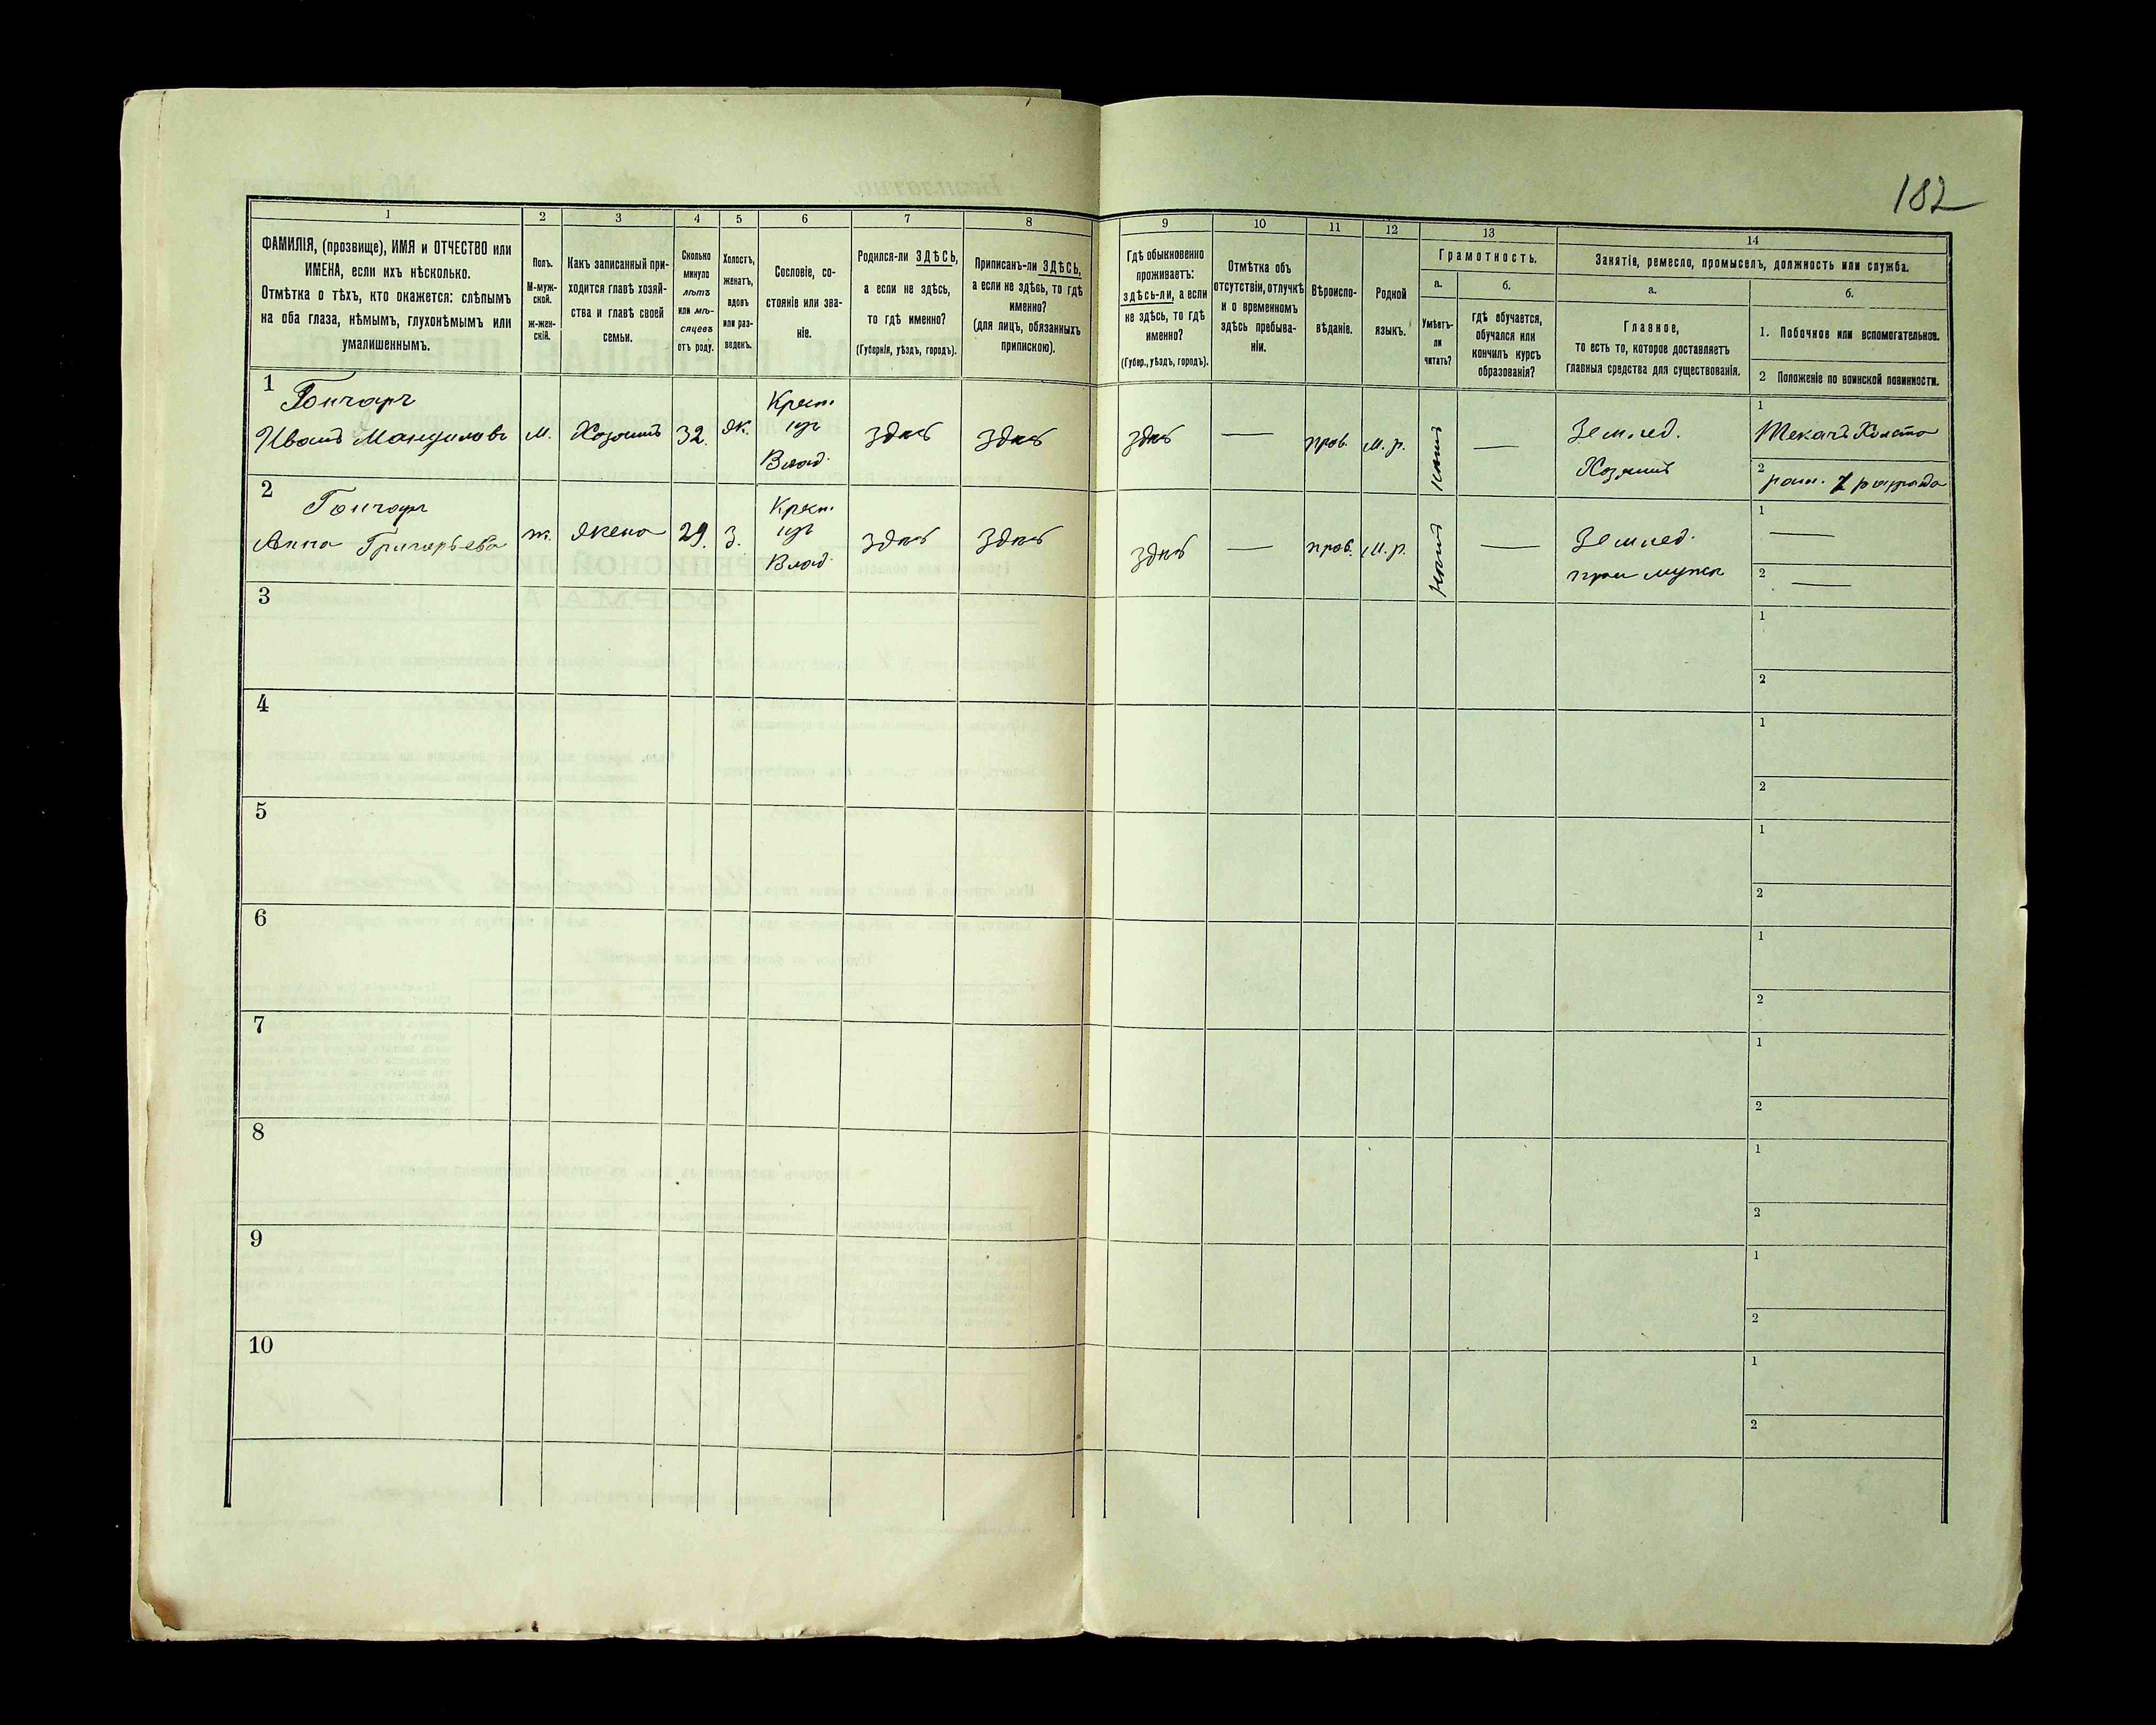 182
1
2
3
4
5
6
7
8
9
10
11
12
13
14
ФАМИЛІЯ, (прозвище), ИМЯ и ОТЧЕСТВО или
ИМЕНА, если ихъ нѣсколько.
Отмѣтка о тѣхъ, кто окажется: слѣпымъ
на оба глаза, нѣмымъ, глухонѣмымъ или
умалишеннымъ.
Полъ.
М-муж-
ской.
ж-жен-
скій.
Какъ записанный при-
ходится главѣ хозяй-
ства и главѣ своей
семьи.
Сколько
минуло
лѣтъ
или мѣ-
сяцевъ
отъ роду.
Холостъ,
женатъ,
вдовъ
или раз-
веденъ.
Сословіе, со-
стояніе или зва-
ніе.
Родился-ли ЗДѢСЬ,
а если не здѣсь,
то гдѣ именно?
(Губернія, уѣздъ, городъ).
Приписанъ-ли ЗДѢСЬ,
а если не здѣсь, то гдѣ
именно?
(для лицъ, обязанныхъ
припискою).
Гдѣ обыкновенно
проживаетъ:
здѣсь-ли, а если
не здѣсь, то гдѣ
именно?
(Губер., уѣздъ, городъ).
Отмѣтка объ
отсутствіи, отлучкѣ
и о временномъ
здѣсь пребыва-
ніи.
Вѣроиспо-
вѣданіе.
Родной
языкъ.
Грамотность.
а.
Умѣетъ-
ли
читать?
б.
гдѣ обучается,
обучался или
кончилъ курсъ
образованія?
Занятіе, ремесло, промыселъ, должность или служба.
а.
Главное,
то есть то, которое доставляетъ
главныя средства для существованія.
б.
1. Побочное или вспомогательное.
2 Положеніе по воинской повинности.
1 Гончаръ
Иванъ
м.
Хозяинъ
32.
ж.
Крест.
изъ
Влад.
здѣсь
здѣсь
здѣсь
—
прав.
м. р.
—
Землед.
Хозяинъ
1
Ткачъ Холста
2
2 Гончаръ
Анна Григорьева
ж.
жена
29.
з.
Крест.
изъ
Влад.
здѣсь
здѣсь
здѣсь
—
прав.
м. р.
—
Землед.
при мужѣ
1 —
2 —
3
1
2
4
1
2
5
1
2
6
1
2
7
1
2
8
1
2
9
1
2
10
1
2